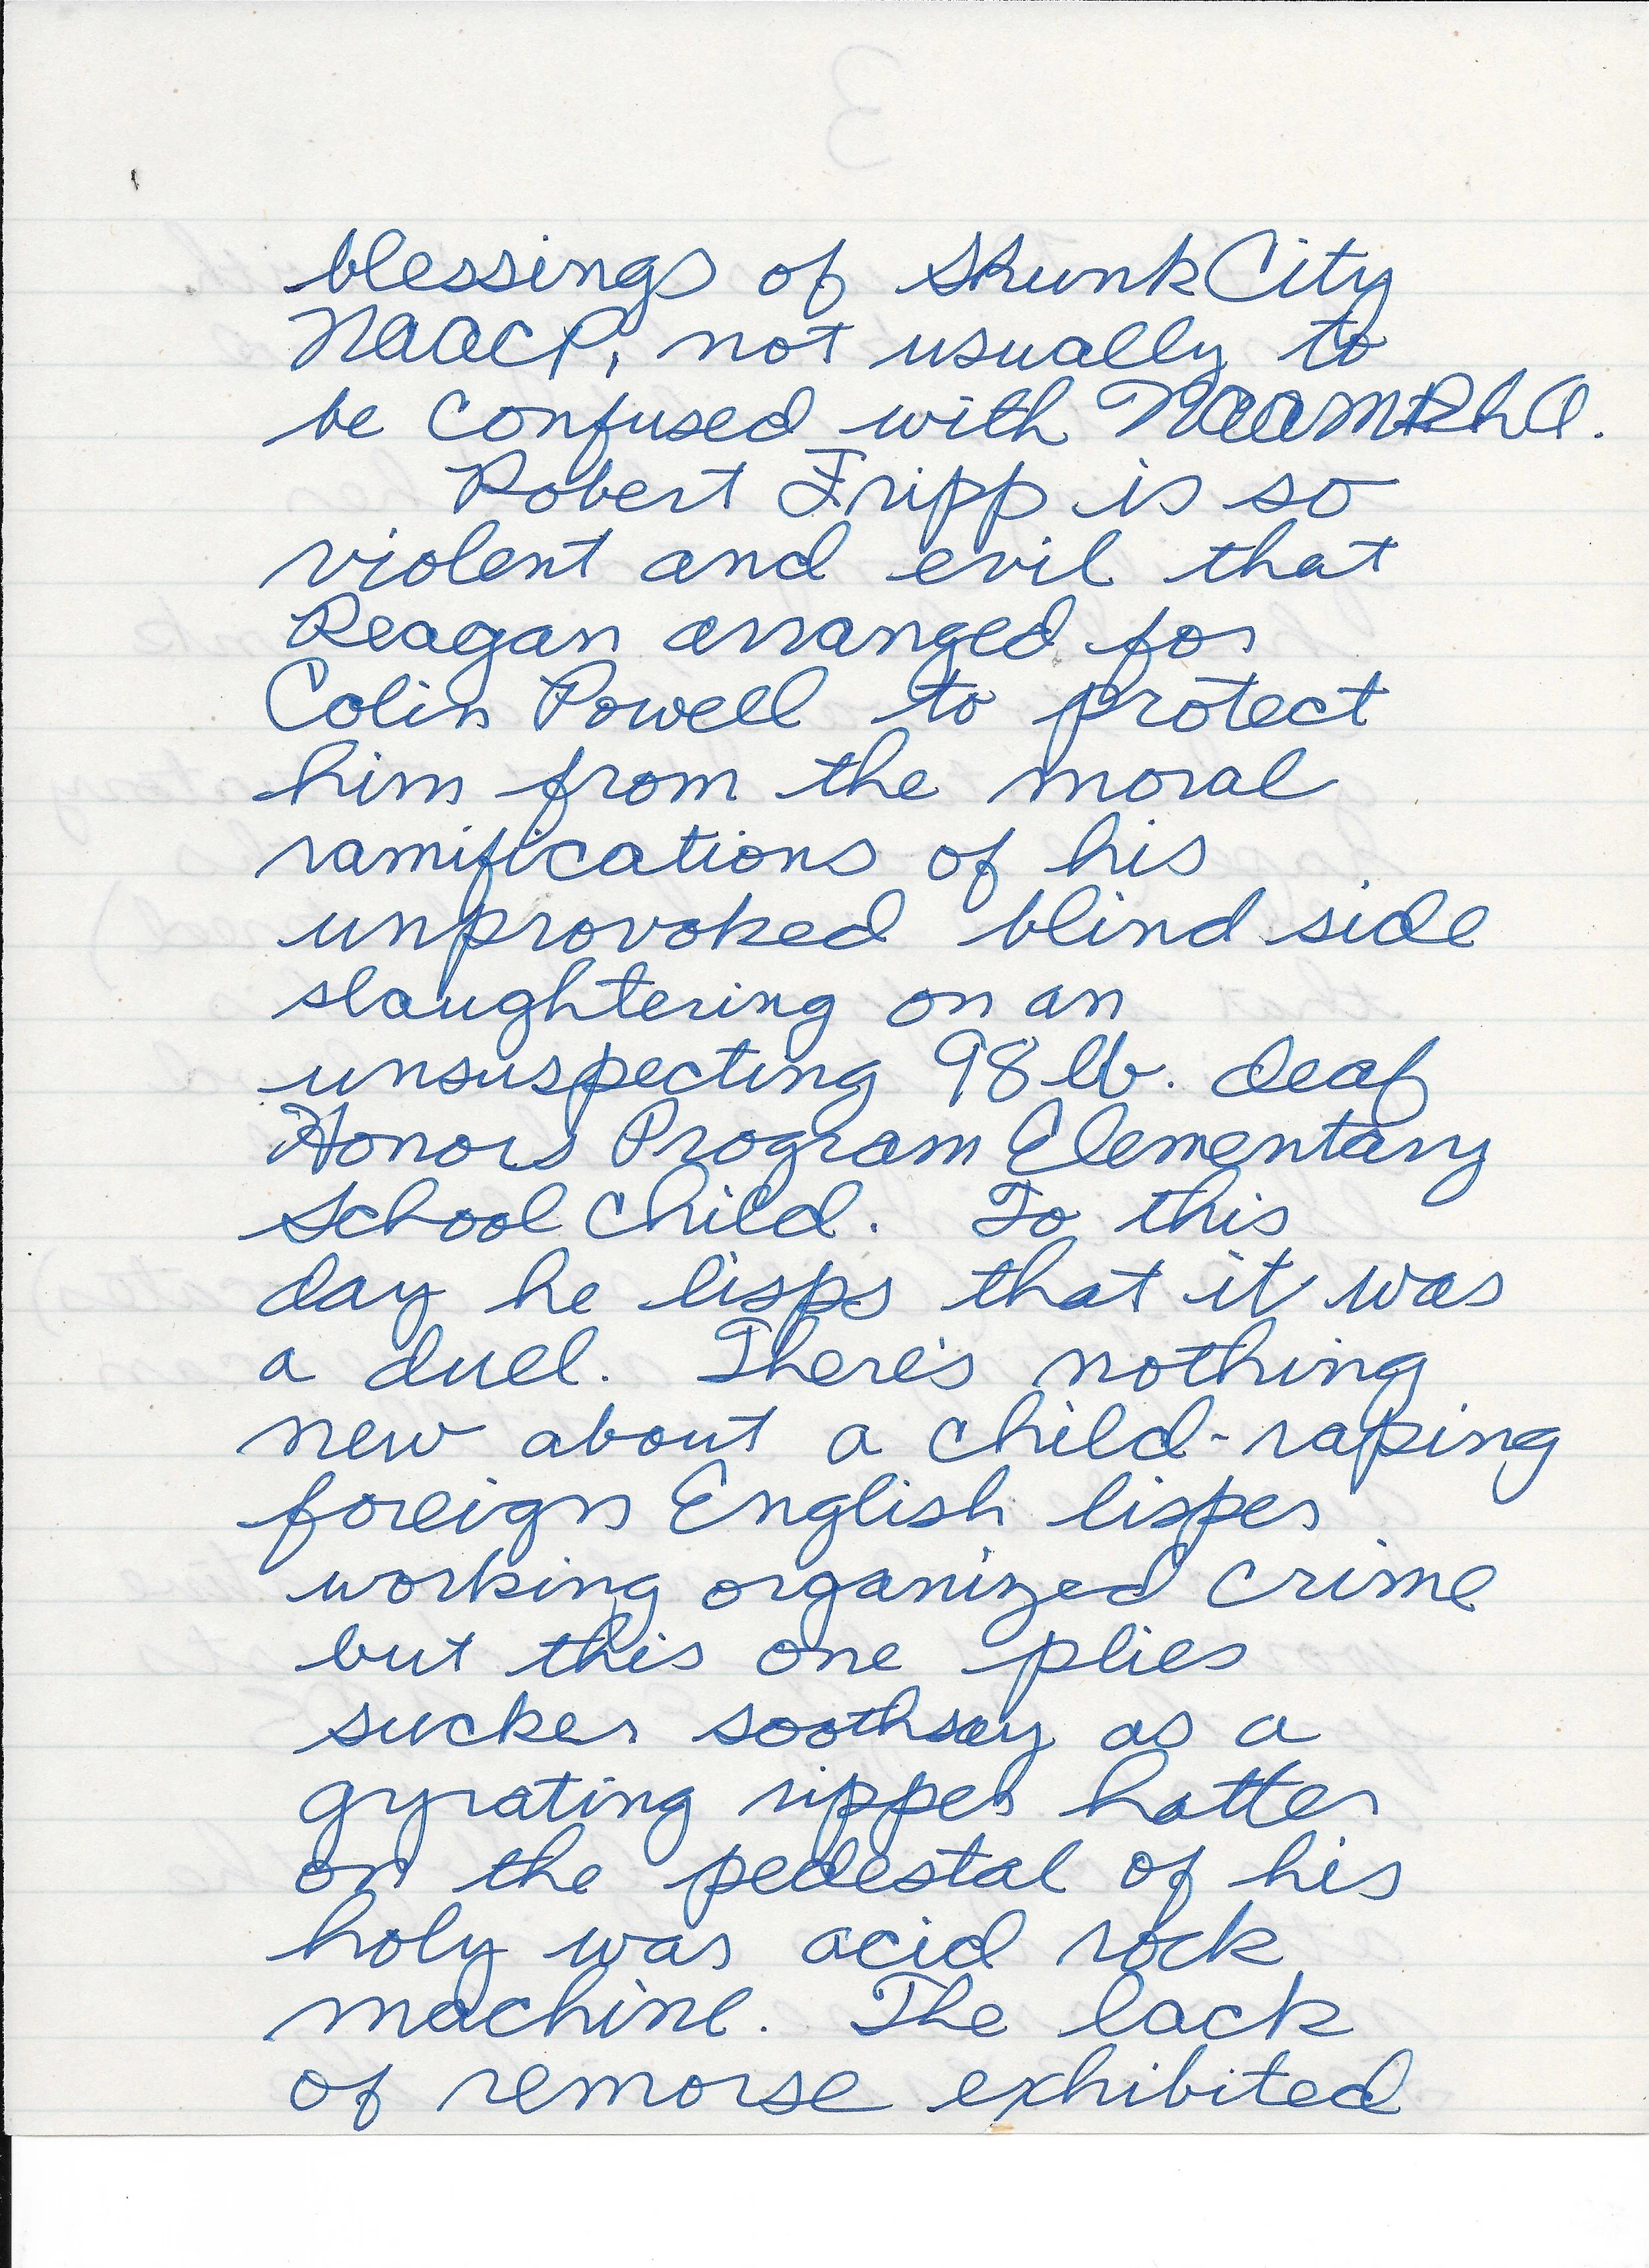 blessings of Skunk City
NAACP, not usually to
be confused with
Robert Fripp is so
violent and evil that
Reagan arranged for
Colin Powell to protect
him from the moral
ramifications of his
unprovoked blind side
slaughtering on an
unsuspecting 98 lb. deaf
Honors Program Elementary
School Child. To this
day he lisps that it was
a duel. There's nothing
new about a child-raping
foreign English lisper
working organized crime
but this one plies
sucker soothsay as a
gyrating ripper hatter
on the pedestal of his
holy was acid rock
machine. The lack
of remorse exhibited